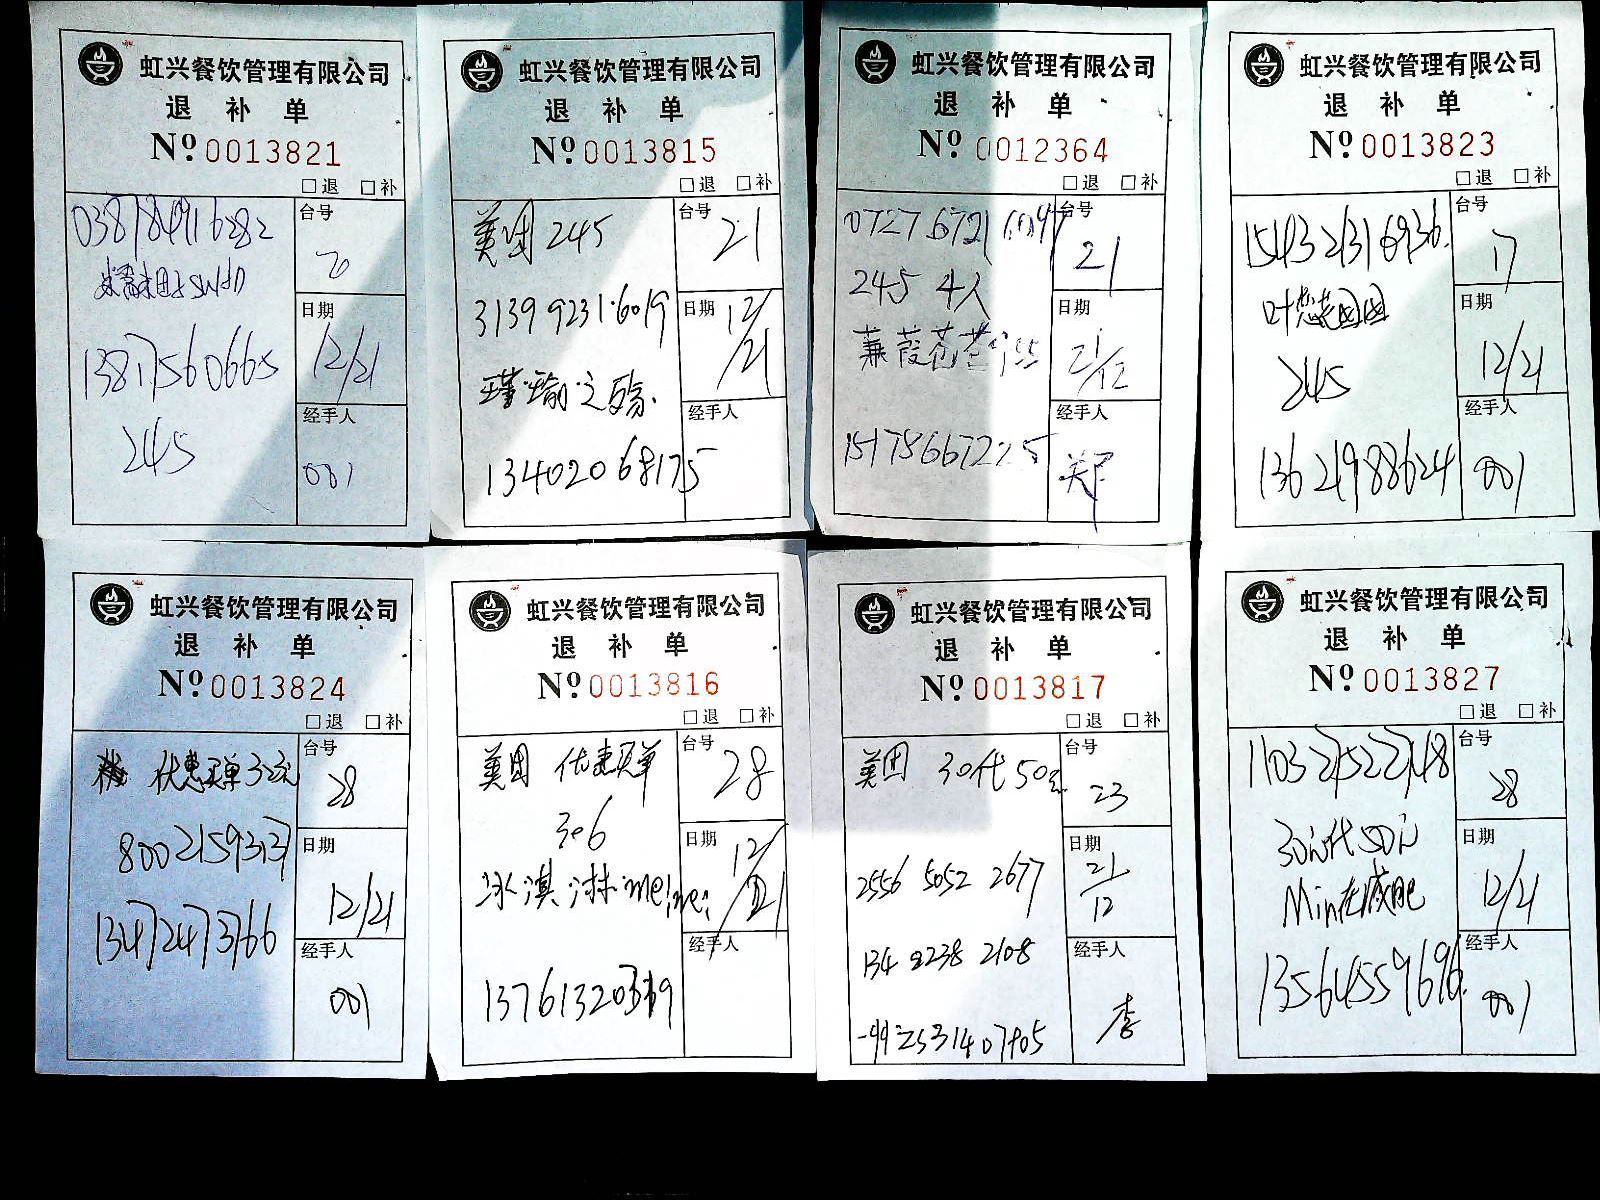 虹兴餐饮管理有限公司
退 补 单
Nº 0013821
□退 □补
台号
20
日期
12/21
经手人
001
245
虹兴餐饮管理有限公司
退 补 单
Nº 0013815
□退 □补
美团 245
3139 9231 6019
瑾瑜之殇.
13402068175
台号
21
日期
12/21
经手人
虹兴餐饮管理有限公司
退 补 单
Nº 0012364
□退 □补
245 4人
蒹葭苍苍
15178667225
台号
21
日期
21/12
经手人
郑
虹兴餐饮管理有限公司
退 补 单
Nº 0013823
□退 □补
245
13621988624
台号
17
日期
12/21
经手人
001
虹兴餐饮管理有限公司
退 补 单
Nº 0013824
□退 □补
优惠买单
13472473766
台号
28
日期
12/21
经手人
001
虹兴餐饮管理有限公司
退 补 单
Nº 0013816
□退 □补
美团 优惠买单
306
冰淇淋meimei
台号
28
日期
12/21
经手人
虹兴餐饮管理有限公司
退 补 单
Nº 0013817
□退 □补
美团 30代50元
2556 5052 2677
134 8238 2108
台号
23
日期
21/12
经手人
李
虹兴餐饮管理有限公司
退 补 单
Nº 0013827
□退 □补
30元代50元
Min在减肥
13564559696
台号
28
日期
12/21
经手人
001